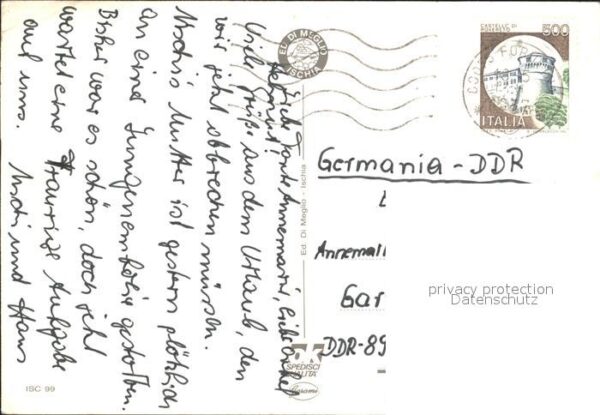 Liebe Tante Annemarie, lieber Onkel
Helmut!
Viele Grüße aus dem Urlaub, den
wir jetzt abbrechen müssen.
Uschi's Mutter ist gestern plötzlich
an einer Lungenembolie gestorben.
Bisher war es schön, doch jetzt
wartet eine traurige Aufgabe
auf uns. Uschi und Hans
ED. DI MEGLIO
ISCHIA
Ed. Di Meglio - Ischia
ok
SPEDISCI
QUALITA'
ISC 99
CASTELLO DI
ROVERETO
500
ITALIA
Germania-DDR
Annemari
Gar
DDR-89
privacy protection
Datenschutz